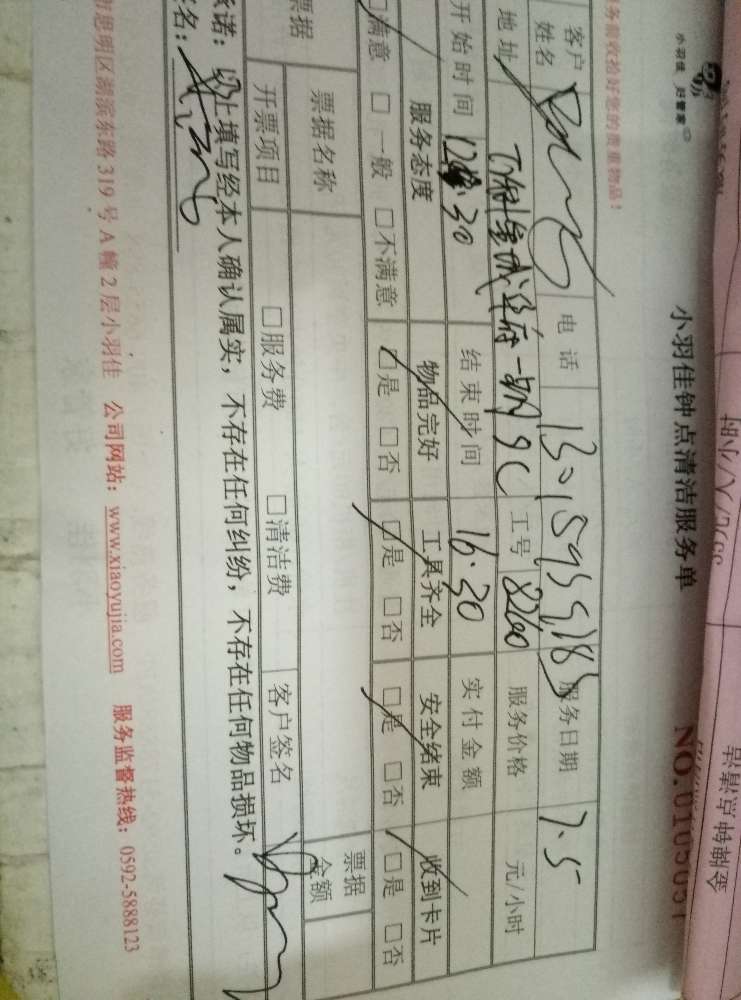 小羽佳 好管家
小羽佳钟点清洁服务单
NO.0105051
务前收捡好您的贵重物品！
客户姓名 电话 服务日期 7.5
地址 工号 8260 服务价格 元/小时
开始时间 12:30 结束时间 16:30 实付金额
服务态度 物品完好 工具齐全 安全结束 收到卡片
满意 □一般 □不满意 □是 □否 □是 □否 □是 □否 □是 □否
票据 票据名称 票据金额
开票项目 □服务费 □清洁费 客户签名
承诺：以上填写经本人确认属实，不存在任何纠纷，不存在任何物品损坏。
签名：
思明区湖滨东路319号A幢2层小羽佳 公司网站：www.xiaoyujia.com 服务监督热线：0592-5888123